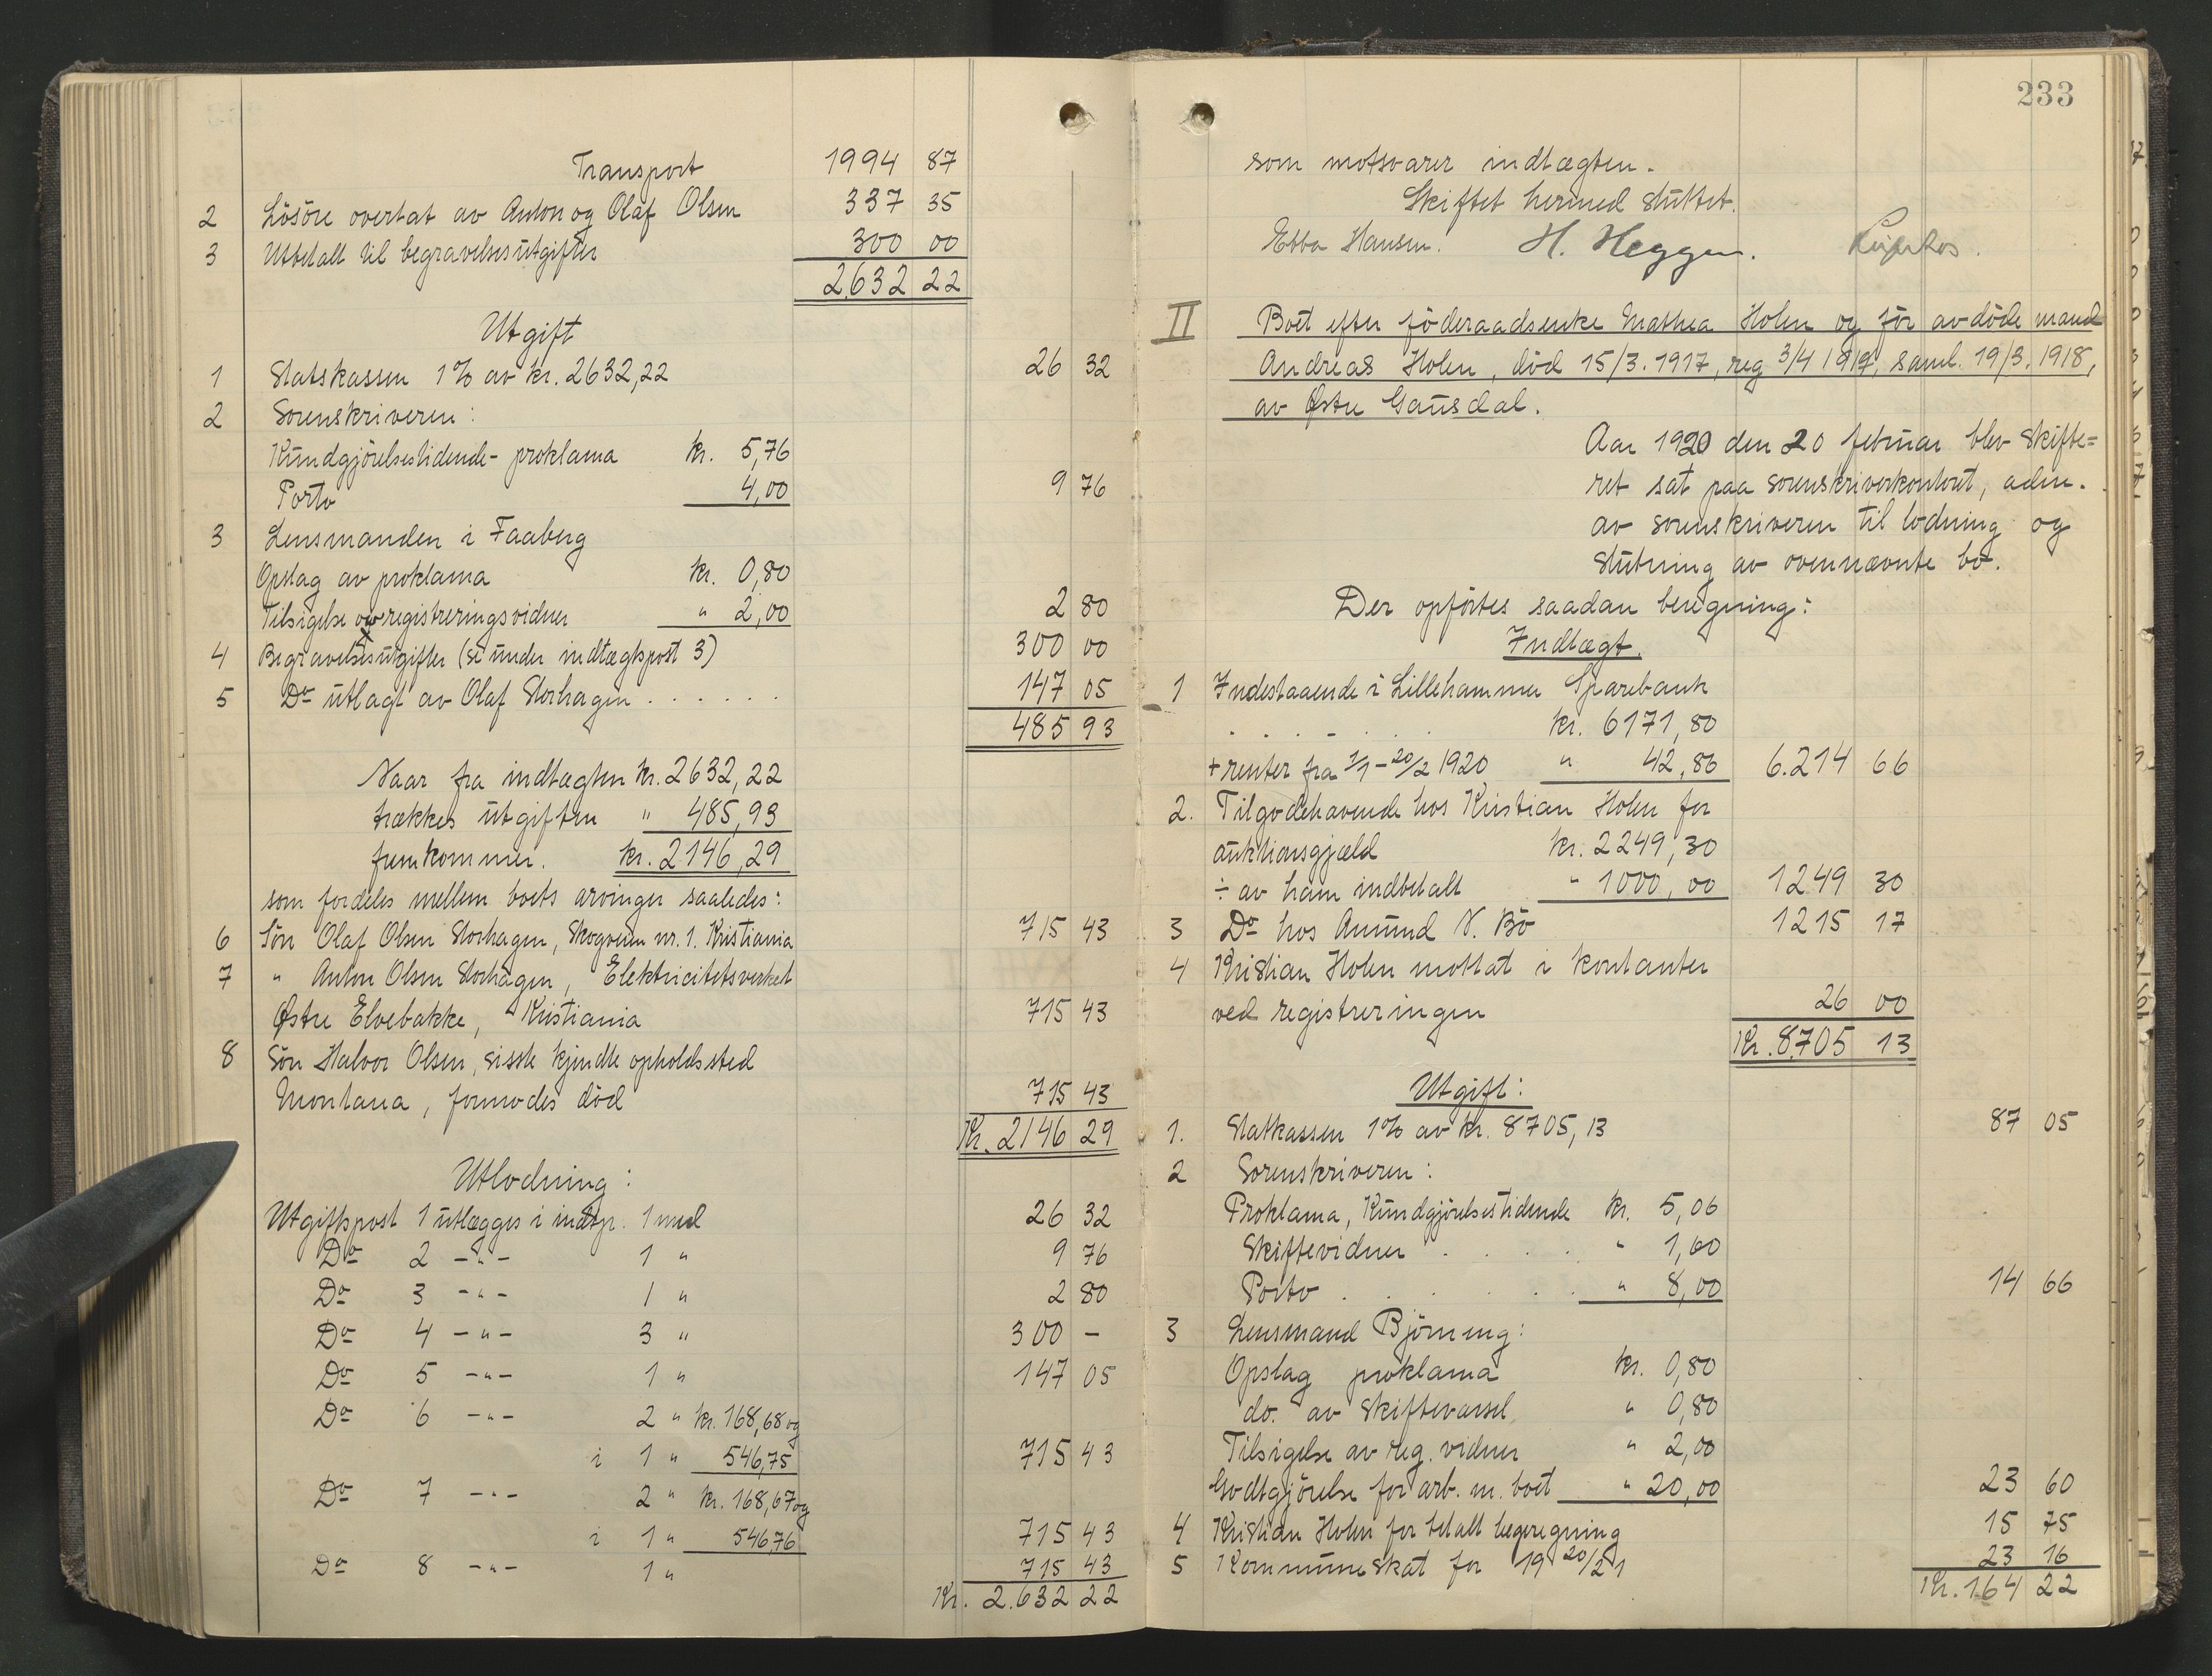 Transport 1994 87
2 Lösöre overtat av Anton og Olaf Olsen 337 35
3 Utbetalt til begravelsesutgifter 300 00
2632 22
Utgift
1 Statskassen 1% av kr. 2632,22 26 32
2 Sorenskriveren:
Kundgjörelsestidende- proklama kr. 5,76
Porto 4,00 9 76
3 Lensmanden i Faaberg
Opslag av proklama kr. 0,80
Tilsigelse av registreringsvidner " 2,00 2 80
4 Begravelsesutgifter (se under indtægtspost 3) 300 00
5 Do utlagt av Olaf Storhagen . . . . . 147 05
485 93
Naar fra indtægten kr. 2632,22
trækkes utgiften " 485,93
fremkommer. kr. 2146,29
som fordeles mellem boets arvinger saaledes:
6 Sön Olaf Olsen Storhagen, Skogveien nr. 1. Kristiania 715 43
7 " Anton Olsen Storhagen, Elektricitetsverket
Østre Elvebakke, Kristiania 715 43
8 Sön Halvor Olsen, sisste kjendte opholdssted
Montana, formodes död 715 43
Kr. 2146 29
Utlodning:
Utgiftspost 1 utlægges i indtgp. 1 med 26 32
Do 2 -"- 1 " 9 76
Do 3 -"- 1 " 2 80
Do 4 -"- 3 " 300 -
Do 5 -"- 1 " 147 05
Do 6 -"- 2 " kr. 168,68 og
i 1 " 546,75 715 43
Do 7 -"- 2 " kr. 168,67 og
i 1 " 546,76 715 43
Do 8 -"- 1 " 715 43
Kr. 2.632 22
233
som motsvarer indtægten.
Skiftet hermed sluttet.
Ebba Hansen. H. Heggen.
II Boet efter föderaadsenke Mathea Holen og för avdöde mand
Andreas Holen, död 15/3. 1917, reg 3/4 1917, saml. 19/3. 1918,
av Østre Gausdal.
Aar 1920 den 20 februar blev skifte=
ret sat paa sorenskriverkontoret, adm.
av sorenskriveren til lodning og
slutning av ovennævnte bo.
Der opförtes saadan beregning:
Indtægt.
1 Indestaaende i Lillehammer Sparebank
. . . . . . kr. 6171,80
+ renter fra 1/1 - 20/2 1920 " 42,86 6.214 66
2. Tilgodehavende hos Kristian Holen for
auktionsgjæld kr. 2249,30
÷ av ham indbetalt " 1000,00 1249 30
3 Do hos Amund N. Bö 1215 17
4 Kristian Holen mottat i kontanter
ved registreringen 26 00
Kr. 8705 13
Utgift:
1. Statkassen 1% av kr. 8705,13 87 05
2 Sorenskriveren:
Proklama, Kundgjörelsestidende kr. 5,06
Skiftevidner . . . . " 1,60
Porto . . . . . . " 8,00 14 66
3 Lensmand Björning:
Opslag proklama kr. 0,80
do. av skiftevarsel " 0,80
Tilsigelse av reg. vidner " 2,00
Godtgjörelse for arb. m. boet " 20,00 23 60
4 Kristian Holen for betalt lægeregning 15 75
5 Kommuneskat for 19 20/21 23 16
Kr. 164 22